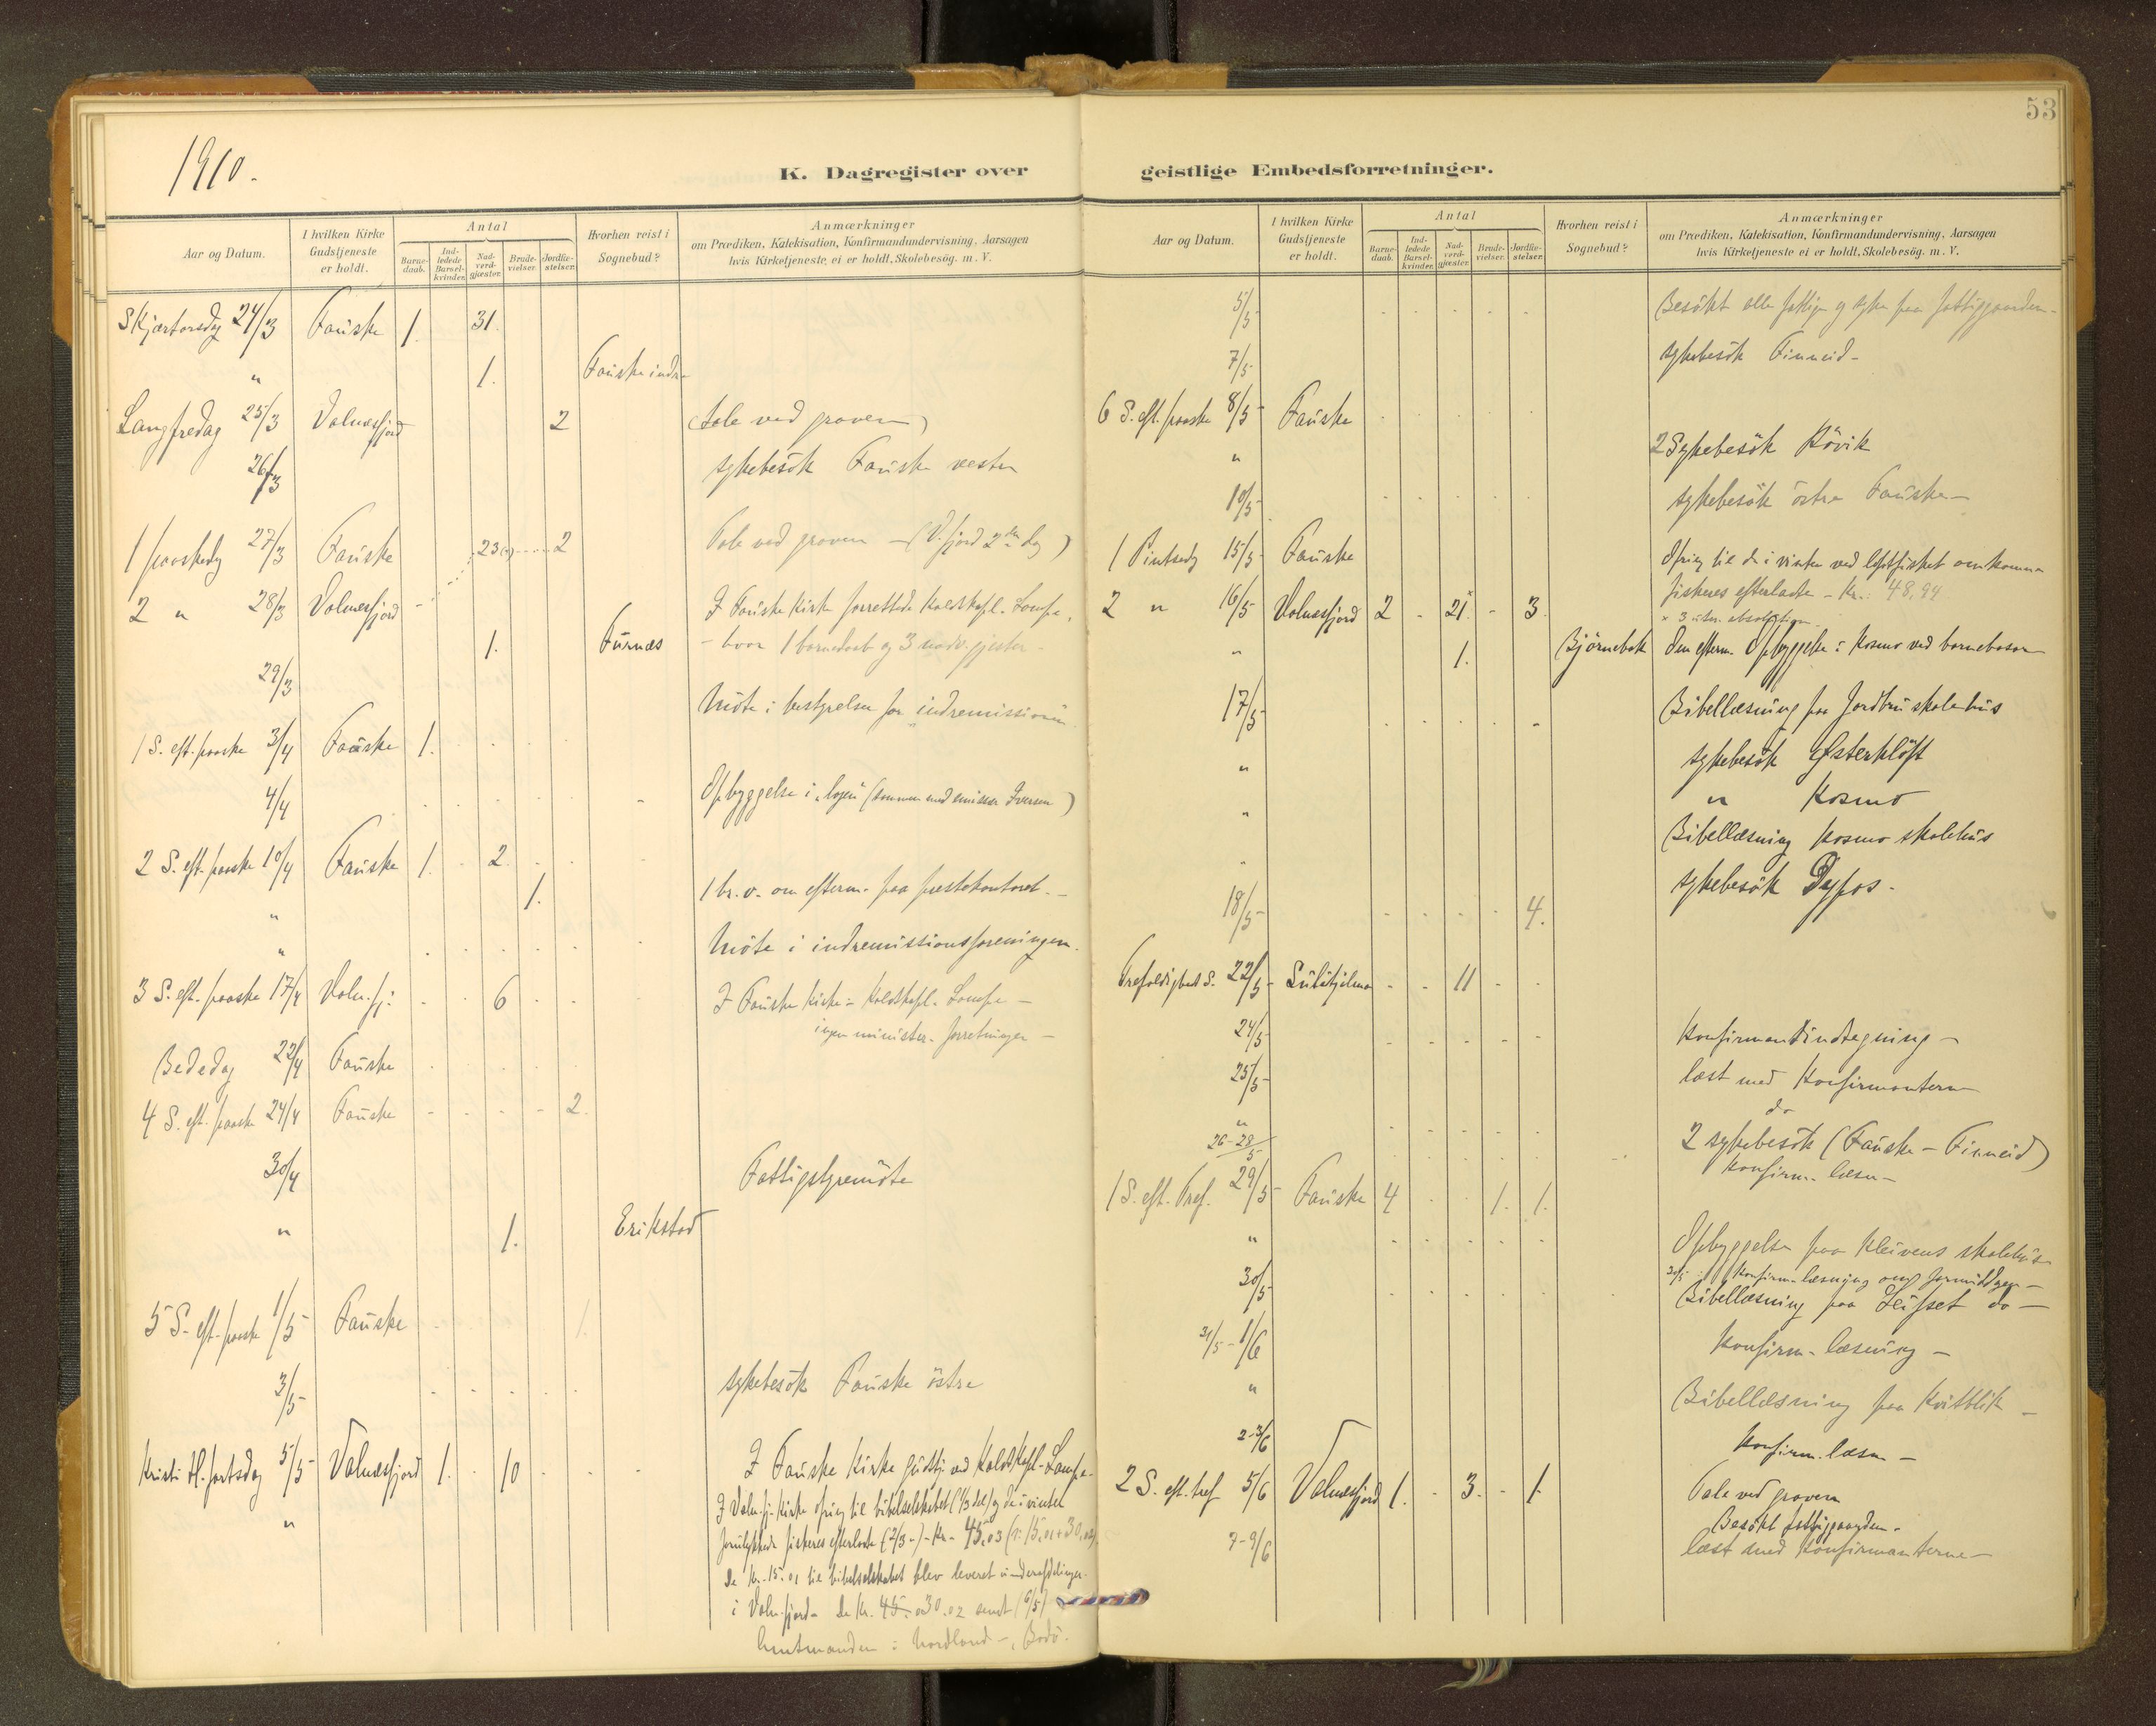 53
1910.
K. Dagregister over geistlige Embedsforretninger.
Aar og Datum.
I hvilken Kirke Gudstjeneste er holdt.
Antal
Barnedaab.
Indledede Barselkvinder.
Nadverdgjæster.
Brudevielser.
Jordfæstelser.
Hvorhen reist i Sognebud?
Anmærkninger
om Prædiken, Katekisation, Konfirmandundervisning, Aarsagen
hvis Kirketjeneste ei er holdt, Skolebesög. m. V.
Skjærtorsdag 24/3 Fauske 1. 31.
" 1. Fauske indre
Langfredag 25/3 Valnesfjord 2 (Tale ved graven)
26/3 sykebesök Fauske vestre
1 paaskedag 27/3 Fauske 23 2 Tale ved graven - (V.fjord 2den dag)
2 " 28/3 Valnesfjord I Fauske Kirke forrettede Kaldskapl. Lampe,
1. Furnes - hvor 1 barnedaab og 3 nadv. gjester -
29/3 Möte i bestyrelsen for indremissionen
1 S. eft. paaske 3/4 Fauske 1.
4/4 Opbyggelse i "logen" (sammen med emissær Iversen)
2 S. eft. paaske 10/4 Fauske 1. 2.
1. 1 br.v. om efterm. paa prestekontoret. -
" Möte i indremissionsforeningen.
3 S. eft. paaske 17/4 Valn.fj: 6 I Fauske Kirke = Kaldskapl. Lampe -
ingen minister. forretninger -
Bededag 22/4 Fauske
4 S. eft. paaske 24/4 Fauske 2.
30/4 Fattigstyremöte
" 1. Erikstad
5 S. eft. paaske 1/5 Fauske 1.
3/5 sykebesök Fauske östre
Kristi Hl.fartsdag 5/5 Valnesfjord 1. 10 I Fauske Kirke gudstj. ved Kaldskapl. Lampe.
" I Valn.fj. kirke ofring til bibelselskabet (1/3 del) og de i vinter
forulykkede fiskeres efterladte (2/3 -) - Kr. 45,03 (: 15,01 + 30,02)
De kr. 15.01 til bibelselskabet blev leveret underafdelingen
i Valn.fjord - De kr. 30.02 sendt (6/5)
Amtmanden i Nordland -, Bodö.
Aar og Datum.
I hvilken Kirke Gudstjeneste er holdt.
Antal
Barnedaab.
Indledede Barselkvinder.
Nadverdgjæster.
Brudevielser.
Jordfæstelser.
Hvorhen reist i Sognebud?
Anmærkninger
om Prædiken, Katekisation, Konfirmandundervisning, Aarsagen
hvis Kirketjeneste ei er holdt, Skolebesög. m. V.
5/5 Besökt alle fattige og syke paa fattiggaarden -
7/5 sykebesök Finneid -
6 S. eft. paaske 8/5 Fauske
" 2 Sykebesök Rövik
10/5 sykebesök östre Fauske -
1 Pintsedag 15/5 Fauske Ofring til de i vinter ved Lofotfisket omkomne
fiskeres efterladte - Kr.: 48,94
2 " 16/5 Valnesfjord 2 - 21x - 3. x 3 uten absolution.
" 1. Björnebak Den efterm. Opbyggelse i Kosmo ved barnebasar
17/5 Bibellæsning paa Jordbru skolehus
" sykebesök Østerklöft
" " Kosmo
" Bibellæsning Kosmo skolehus
sykebesök Dypos -
18/5 4.
Trefoldigheds S. 22/5 Sulitjelma - - 11 -
24/5 Konfirmantindtegning -
25/5 læst med Konfirmanterne
do
" 2 sykebesök (Fauske - Finneid)
26-28/5 Konfirm. læsn -
1 S. eft. Tref. 29/5 Fauske 4 1. 1.
" Opbyggelse paa Kleivens skolehus
30/5 Konfirm. læsning om formiddagen -
30/5 Bibellæsning paa Leifset do -
31/5 - 1/6 Konfirm. læsning -
" Bibellæsning paa Kvitblik -
2-3/6 Konfirm. læsn -
2 S. eft. tref 5/6 Valnesfjord 1. - 3. - 1. Tale ved graven
Besökt fattiggaarden.
7-9/6 læst med Konfirmanterne -